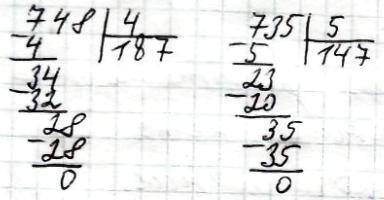 748 | 4
-4 | 187
34
-32
28
-28
0
735 | 5
-5 | 147
23
-20
35
-35
0